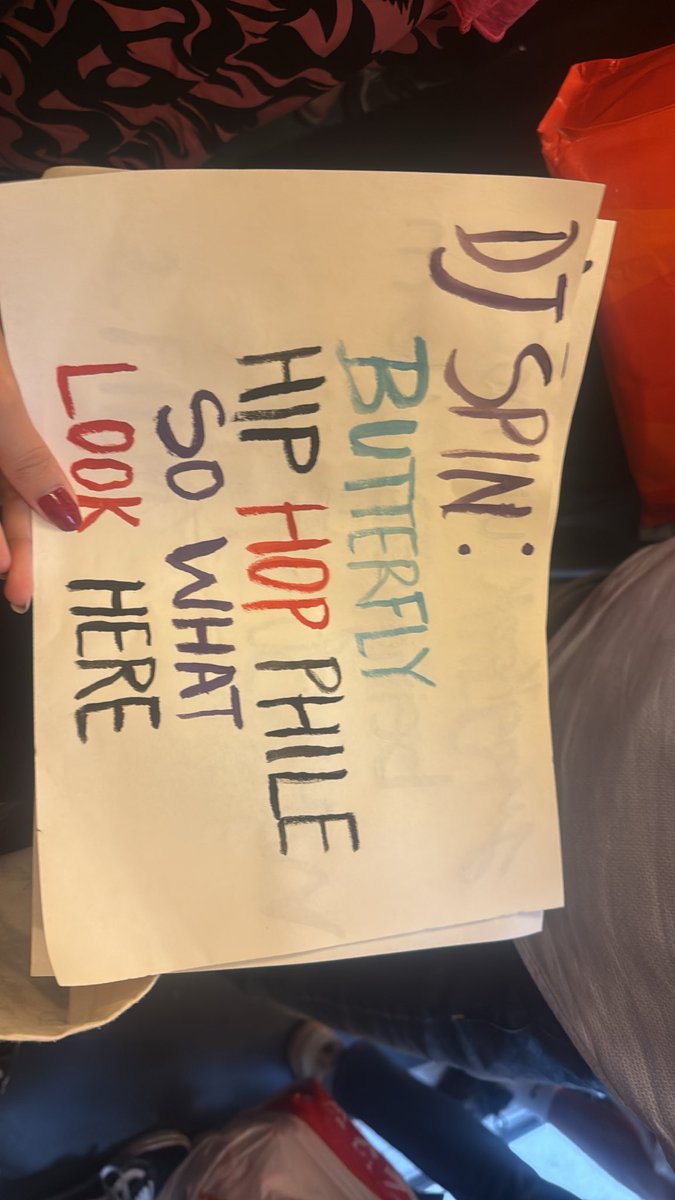 DJ SPIN:
BUTTERFLY
HIP HOP PHILE
SO WHAT
LOOK HERE